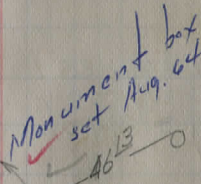 Monument box
set Aug. 64
46 13